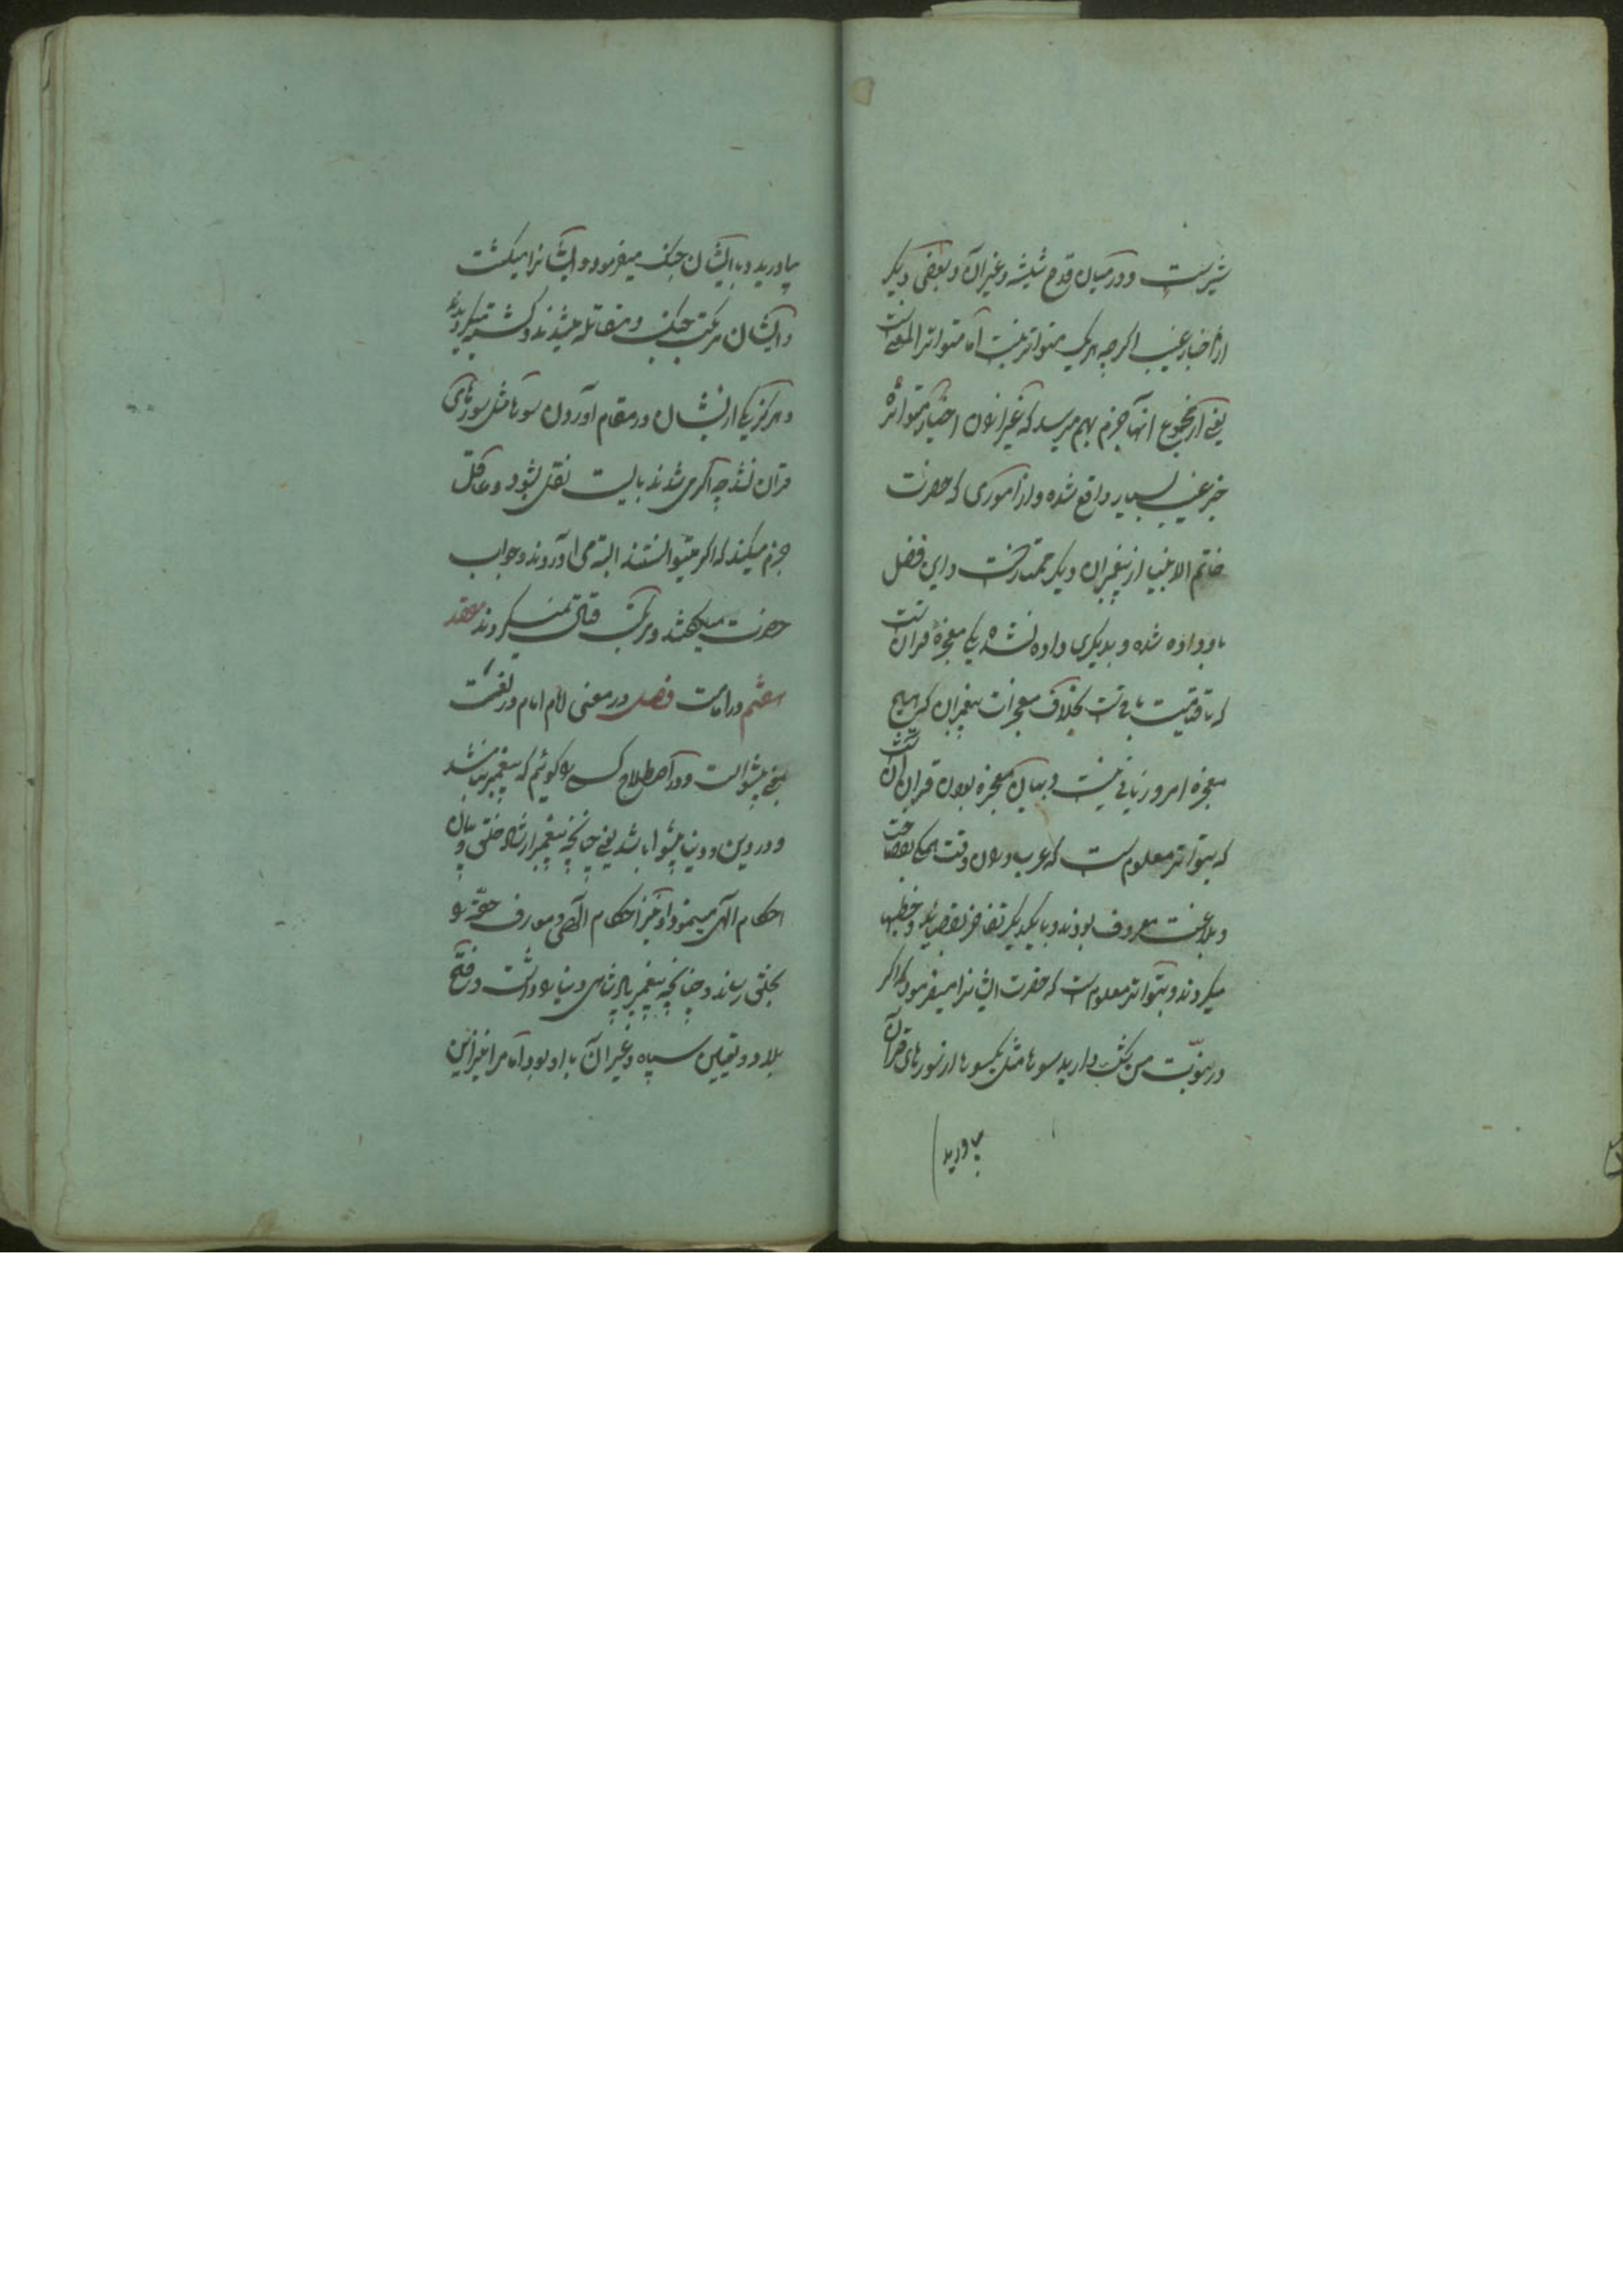 شیرست و در میان قدح شیشه و غیر آن و بعضی دیکر
از اخبار غیب اکرچه هریک متواتر نیست اما متواتر المعنی است
یعنی از مجموع انها جزم بهم میرسد که غیر انون اخبار متواتره
خبر غیب بسیار واقع شده و از اموری که حضرت
خاتم الانبیا از پیغمبران دیکر ممتاز است و این فضل
باو داده شده و بدیکری داده نشده یکی معجزه قرانست
که تا قیامت باقیست بخلاف معجزات پیغمبران که هیچ
معجزه امروز باقی نیست و بیان معجزه بودن قران آنست
که بتواتر معلوم است که عرب دران وقت همکی بفصاحت
و بلاغت معروف بودند و با یکدیکر تفاخر بقصاید و خطبها
میکردند و بتواتر معلوم است که حضرت ایشانرا میفرمود که اکر
در نبوت من شک دارید سوره مثل یکسوره از سورهای قرآن
بیاورید
بیاورید و با ایشان جنک میفرمود و ایشانرا میکشت
و ایشان مرتکب جنک و مقاتله میشدند و کشته میکردیدند
و هرکز یکی از ایشان در مقام آوردن سوره مثل سورهای
قران نشد چه اکر می شدند بایست نقل بشود و عاقل
جزم میکند که اکر میتوانستند البته می اوردند و جواب
حضرت میکفتند و مرتکب قتال نمیکردیدند مقصد
هفتم در امامت فصل در معنی امام امام در لغت
بمعنی پیشواست و در اصطلاح کسی را کوئیم که پیغمبر نباشد
و در دین و دنیا پیشوا باشد یعنی چنانچه پیغمبر ارشاد خلق و بیان
احکام الهی مینمود او نیز احکام الهی و معارف حقه را
بخلق رساند و چنانچه پیغمبر پادشاهی دنیا را داشت و فتح
بلاد و تعیین سپاه و غیر آن با او بود امام را نیز این